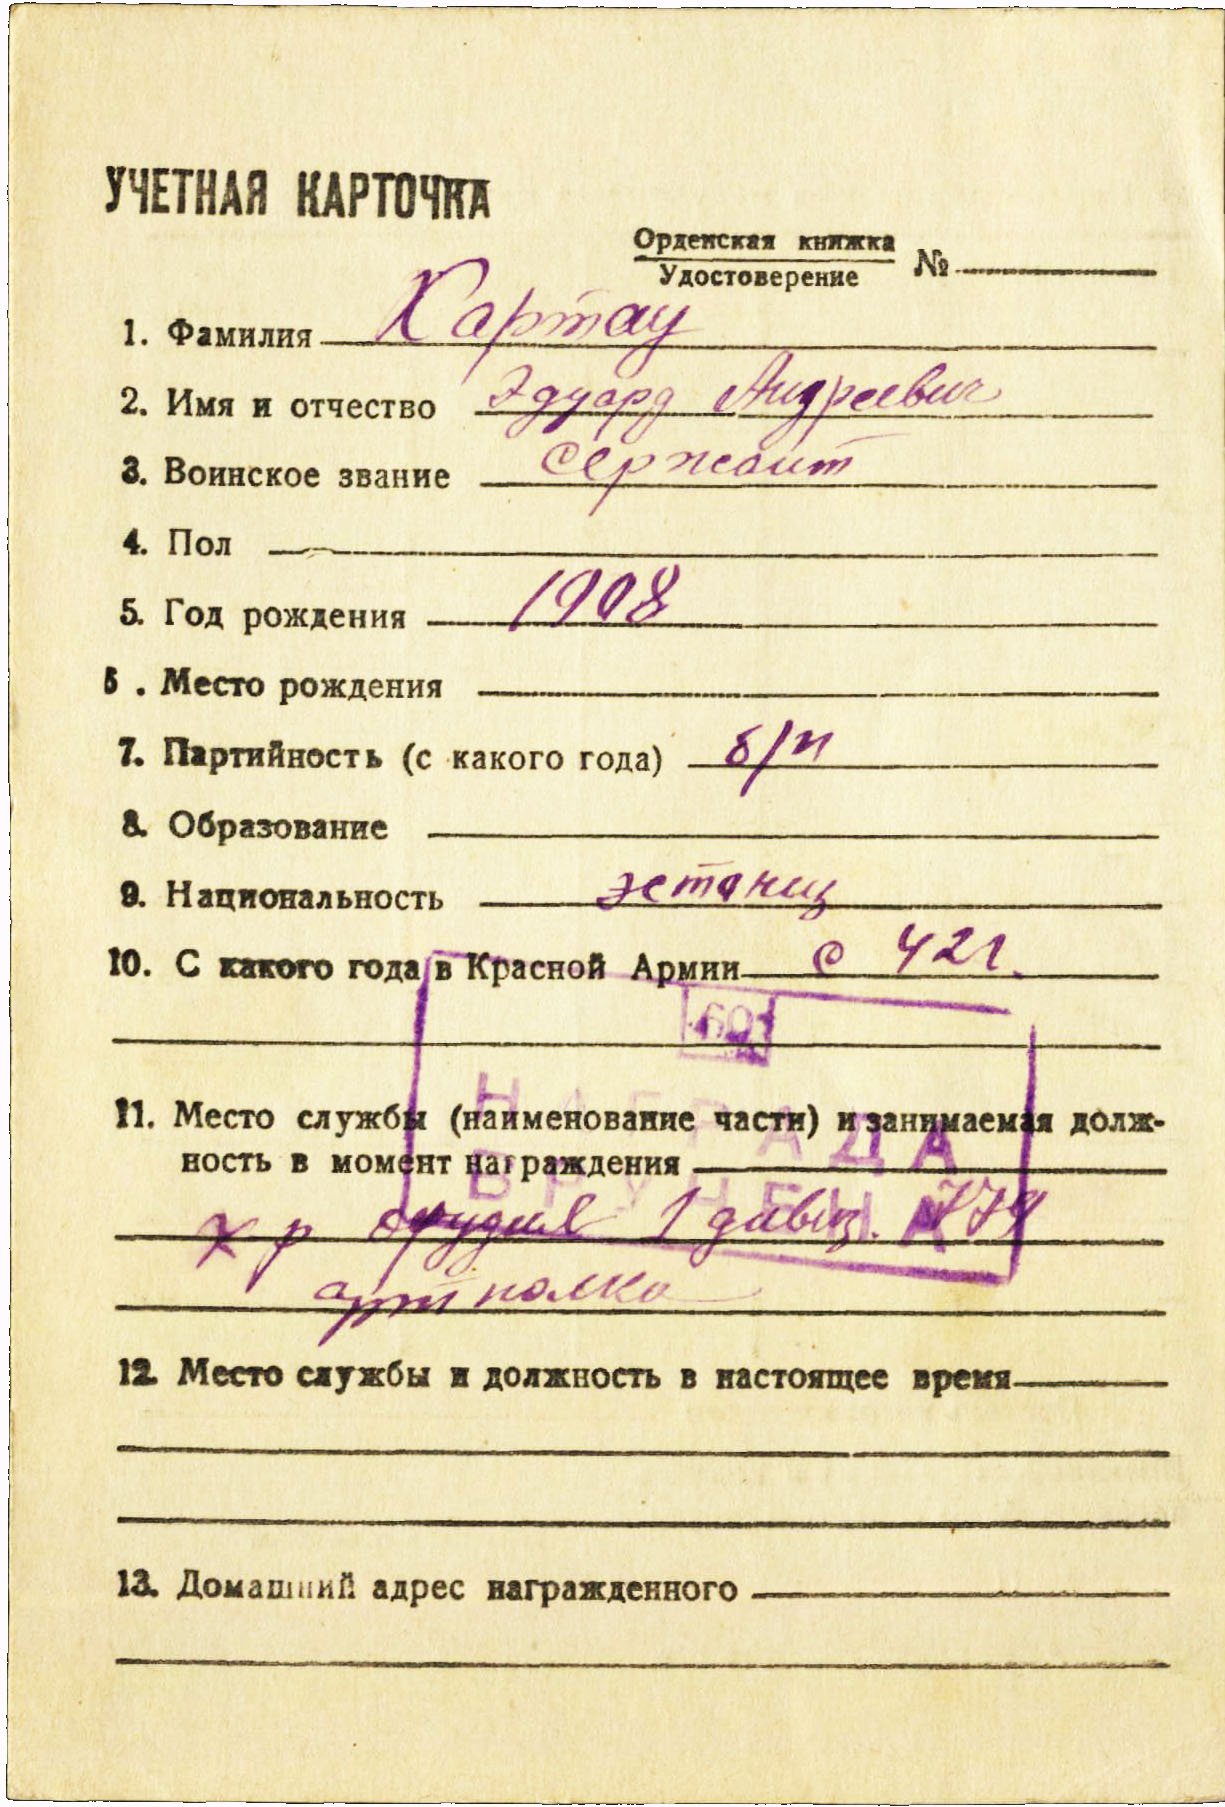 УЧЕТНАЯ КАРТОЧКА
Орденская книжка
Удостоверение №
1. Фамилия Картау
2. Имя и отчество Эдуард Андреевич
3. Воинское звание сержант
4. Пол
5. Год рождения 1908
6. Место рождения
7. Партийность (с какого года) б/п
8. Образование
9. Национальность эстонец
10. С какого года в Красной Армии с 42 г.
НАГРАДА
ВРУЧЕНА
11. Место службы (наименование части) и занимаемая долж-
ность в момент награждения
к р орудия 1 дивиз. 779
арт полка
12. Место службы и должность в настоящее время
13. Домашний адрес награжденного